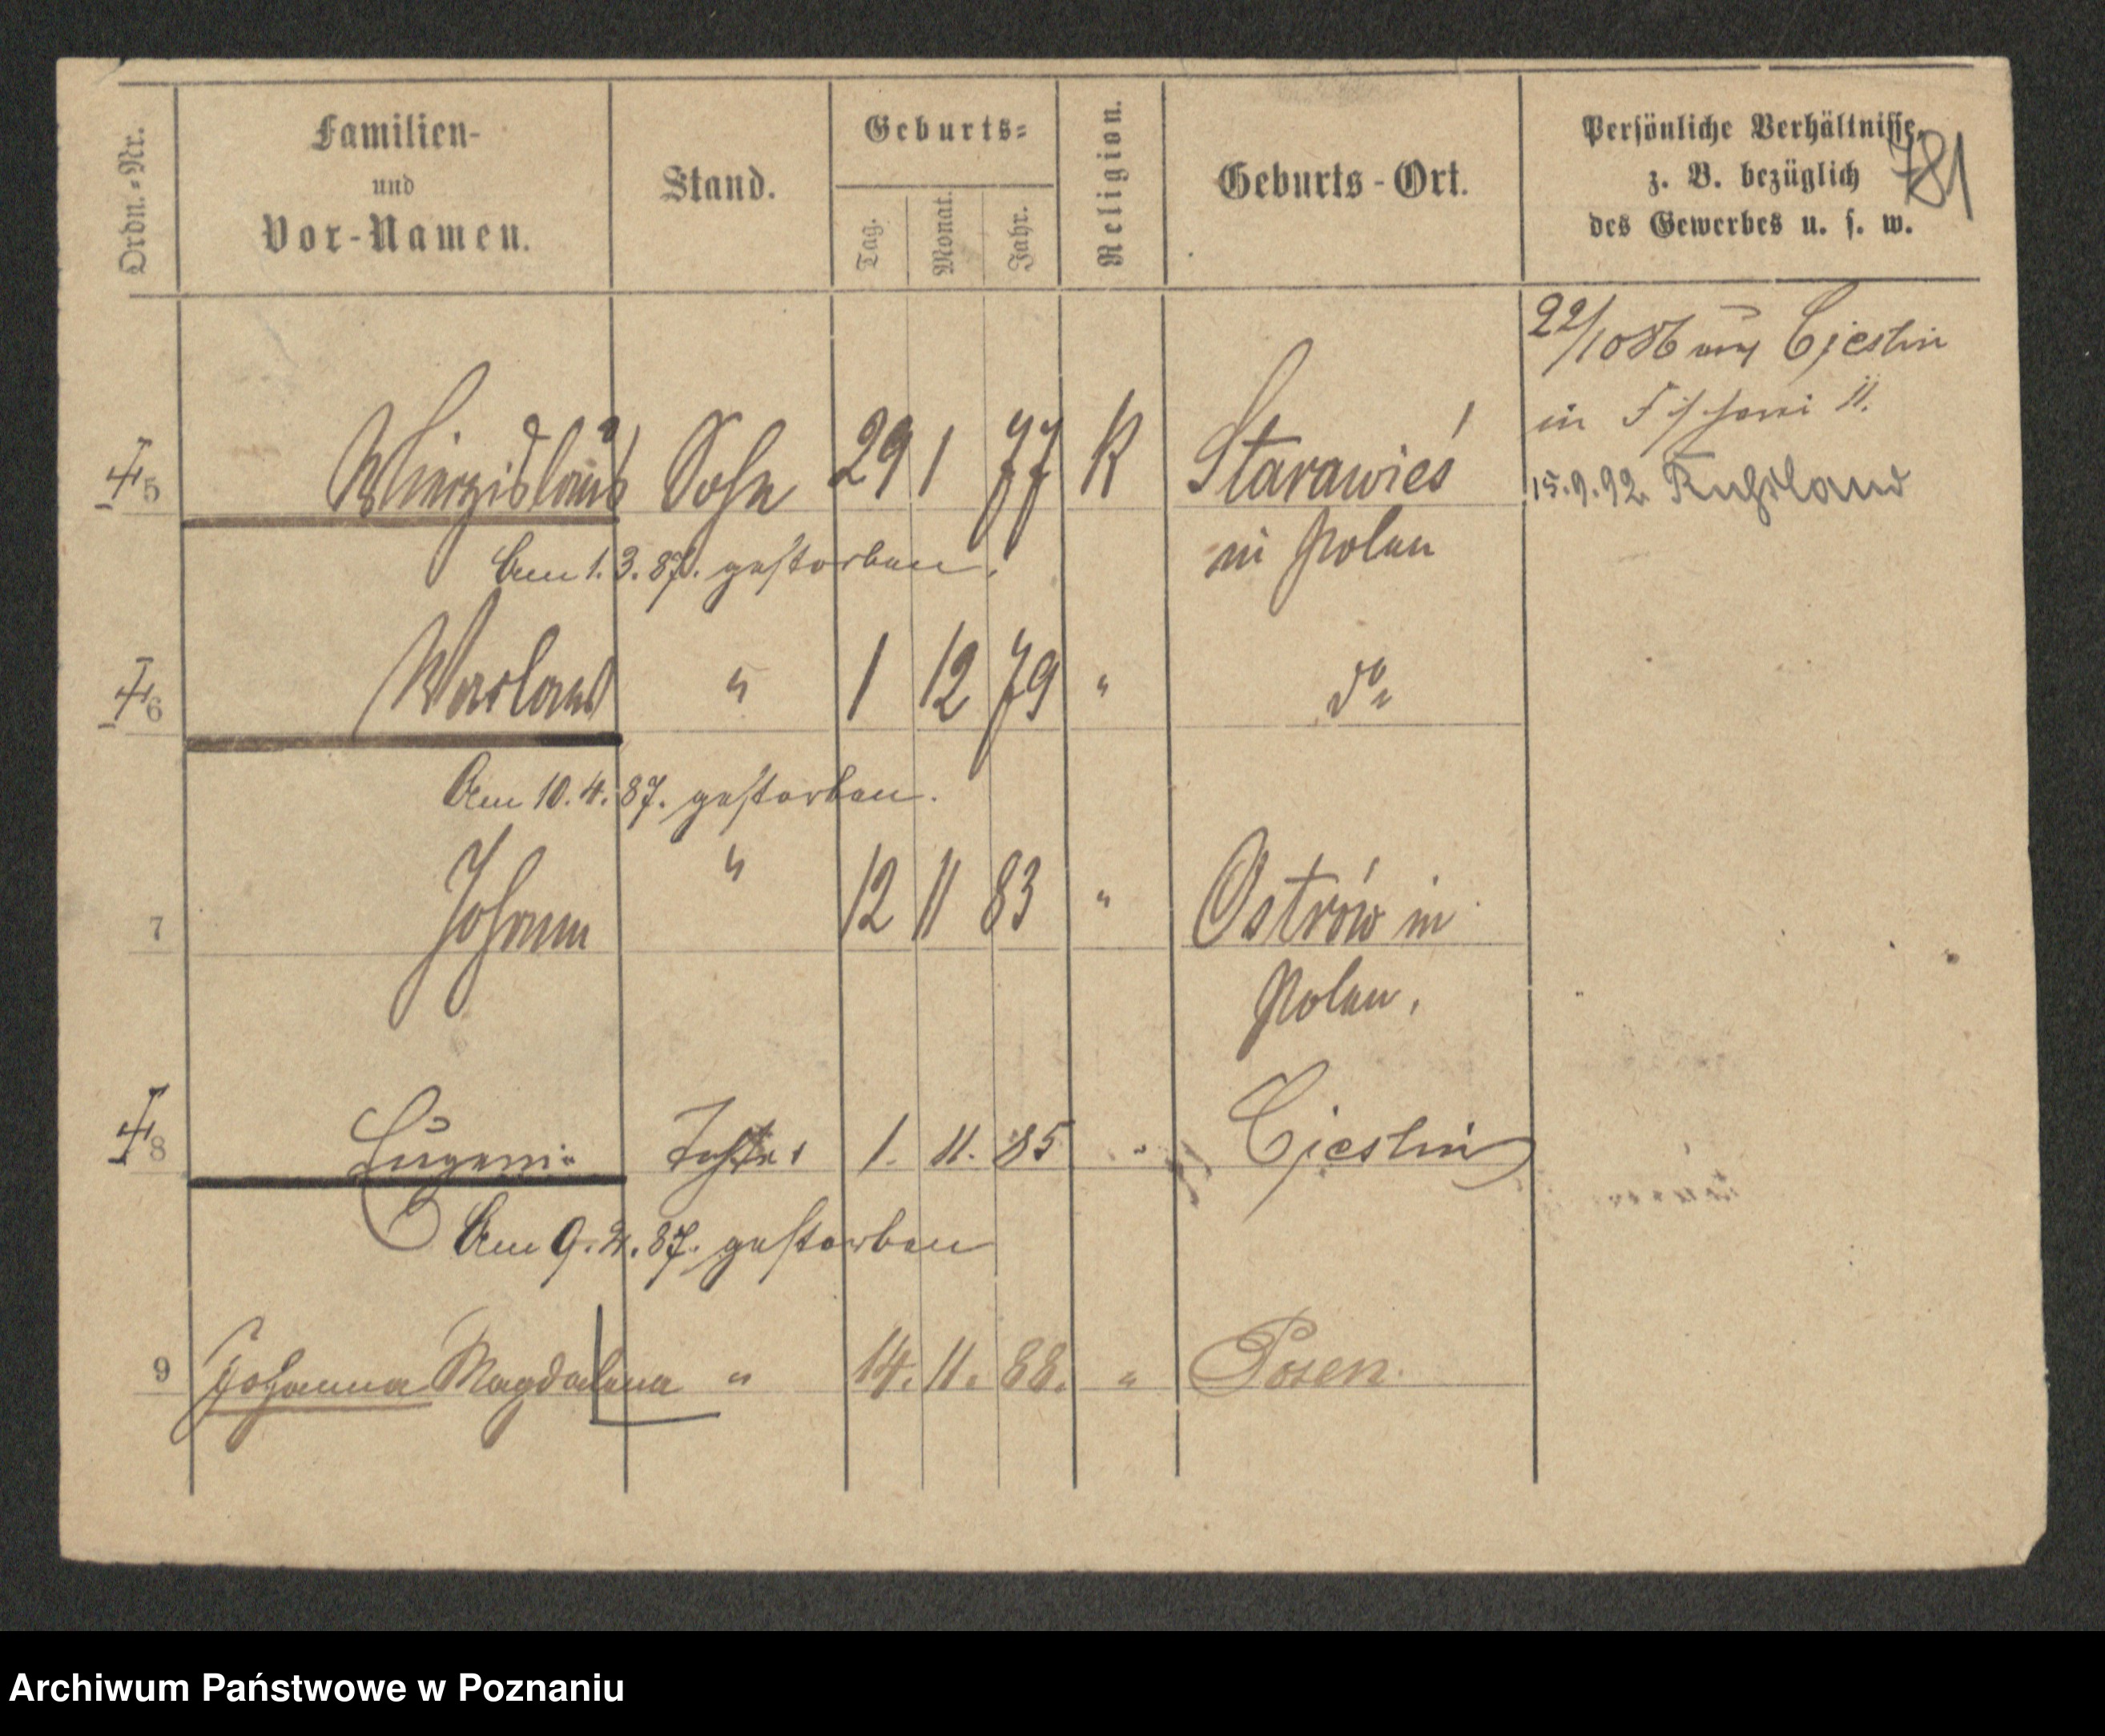 Ordn.-Nr.
Familien-
und
Vor-Namen.
Stand.
Geburts-
Tag.
Monat.
Jahr.
Religion.
Geburts-Ort.
Persönliche Verhältnisse,
z. B. bezüglich
des Gewerbes u. s. w.
781
22/10 86 Cjeslin
in
15.9.92. Russland
5 Sohn 29 1 77 K Starawieś
in Polen
Am 1.3.87. gestorben.
6 " 1 12 79 " do
Am 10.4.87. gestorben.
7 Johann " 12 11 83 " Ostrów in
Polen.
8 Eugenia Tochter 1. 11. 85 " Cjeslin
Am 9.4.87. gestorben
9 Johanna Magdalena " 14. 11. 88. " Posen.
Archiwum Państwowe w Poznaniu